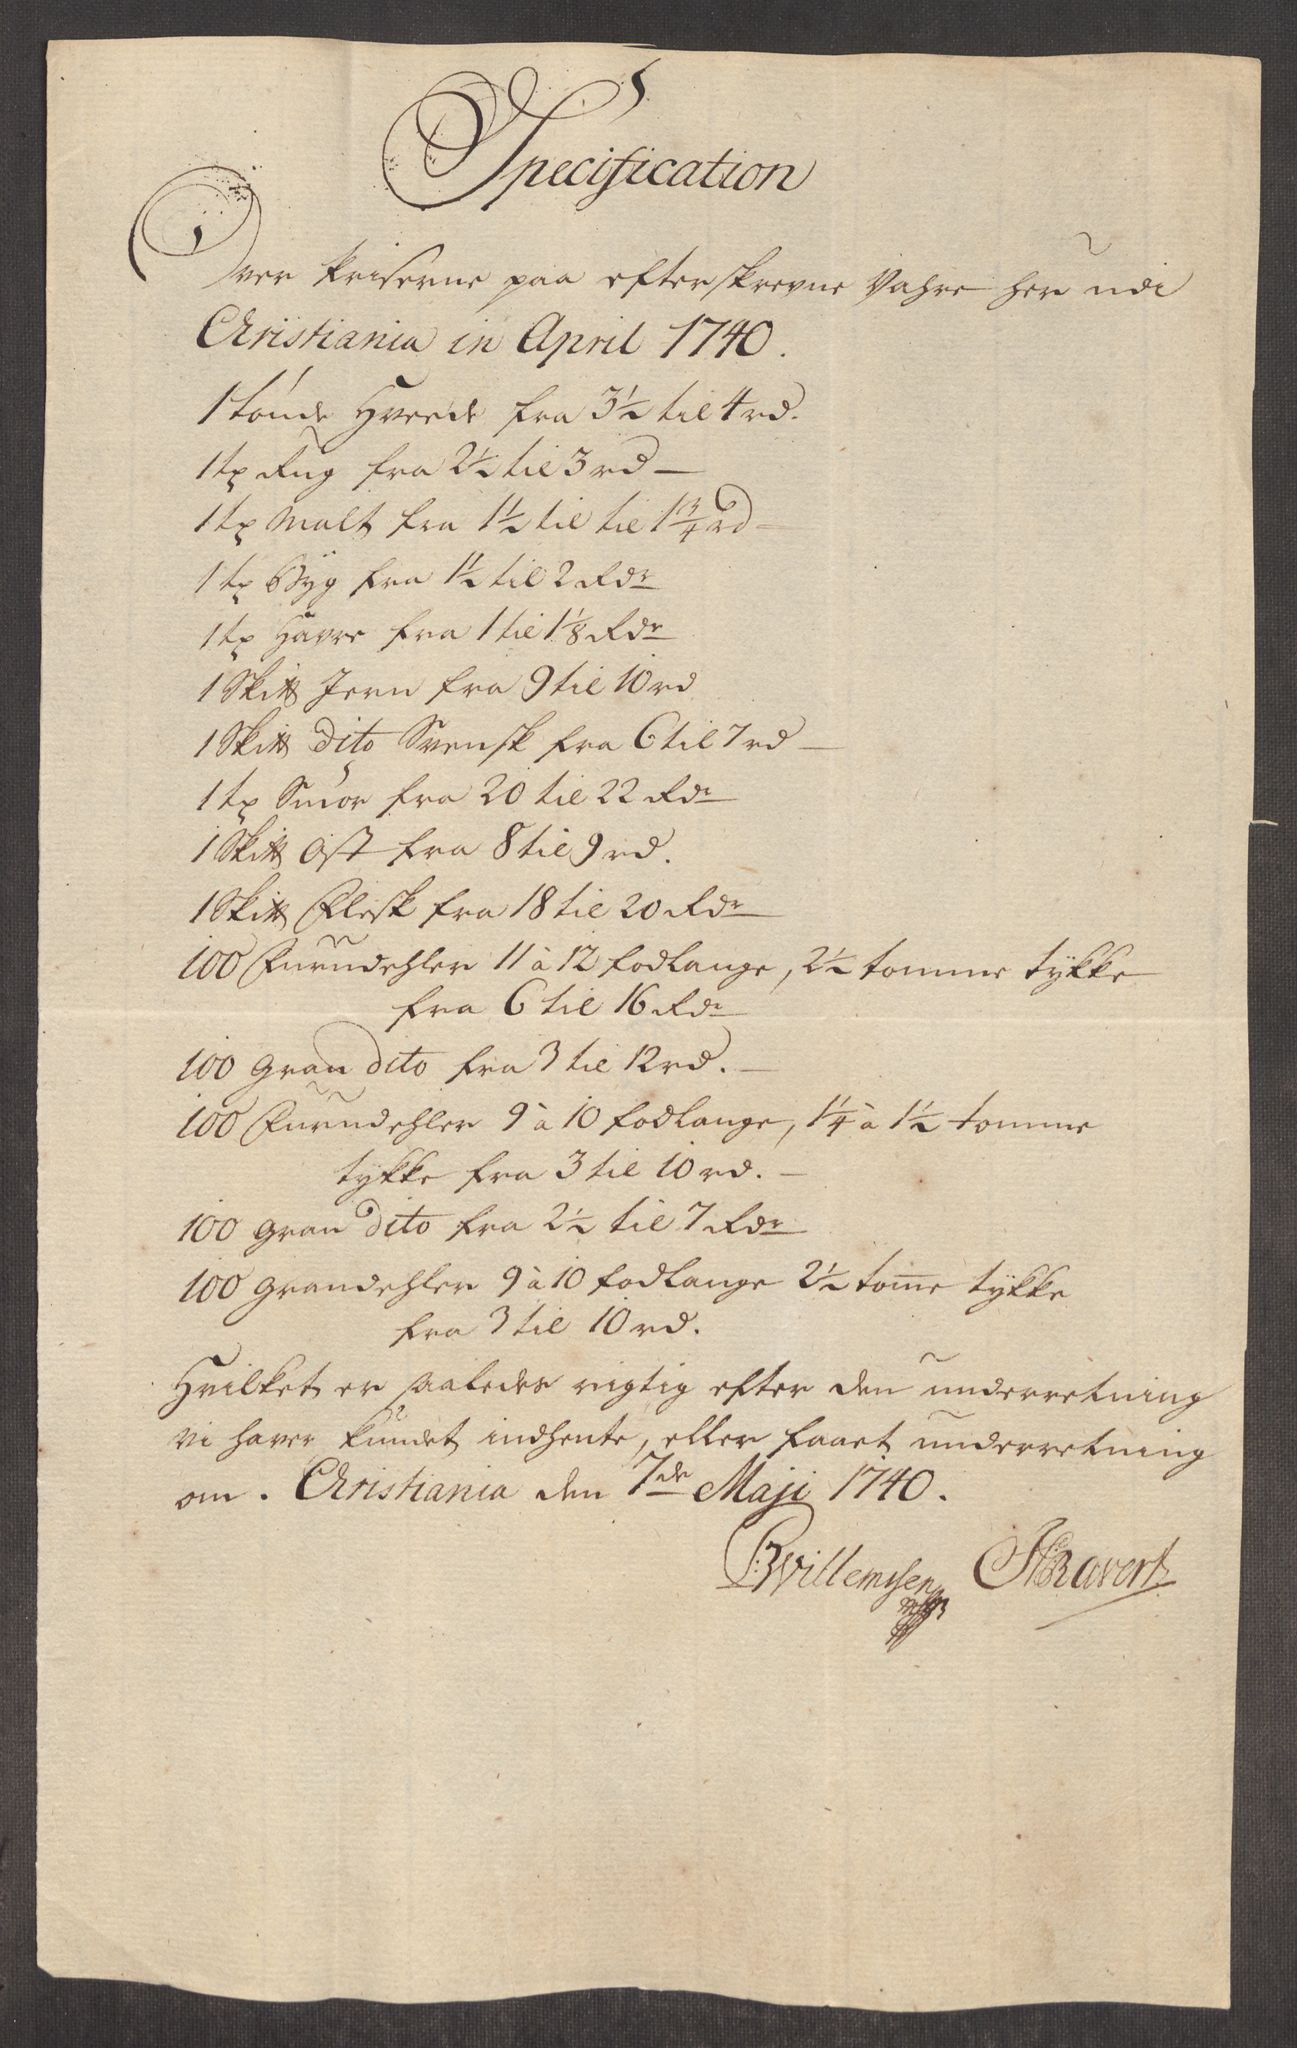 Specification
Over Priserne paa efterskrevne Vahre her udi
Christiania in April 1740.
1 tønde Hveede fra 3½ til 4 rd.
1 tꝑ Rug fra 2½ til 3 rd
1 tꝑ Malt fra 1½ til til 1¾ rd
1 tꝑ Byg fra 1½ til 2 Rdr
1 tꝑ Havre fra 1 til 1⅛ Rdr
1 Skit℔ Jern fra 9 til 10 rd
1 Skit℔ dito Svensk fra 6 til 7 rd
1 tꝑ Smør fra 20 til 22 Rdr
1 Skit℔ Ost fra 8 til 9 rd.
1 Skit℔ Flesk fra 18 til 20 Rdr
100 Furudehler 11 à 12 fodlange, 2½ tomme tÿkke
fra 6 til 16 Rdr
100 Gran dito fra 3 til 12 rd.
100 Furudehler 9 à 10 fodlange, 1¼ à 1½ tomme
tykke fra 3 til 10 rd.
100 Gran dito fra 2½ til 7 Rdr
100 Grandehler 9 à 10 fodlange 2½ tom̅e tÿkke
fra 3 til 10 rd.
Hvilket er saaledes rigtig efter den underretning
vi haver kundet indhente, eller faaet underretning
om. Christiania den 7de Maji 1740.
BWillemsen HRavert